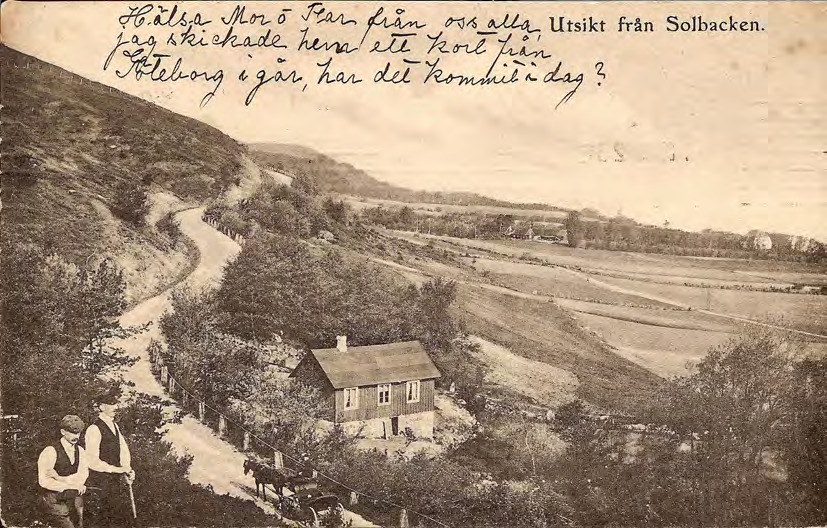 Hälsa Mor o Far från oss alla,
Utsikt från Solbacken.
jag skickade hem ett kort från
Göteborg i går, har det kommit i dag?